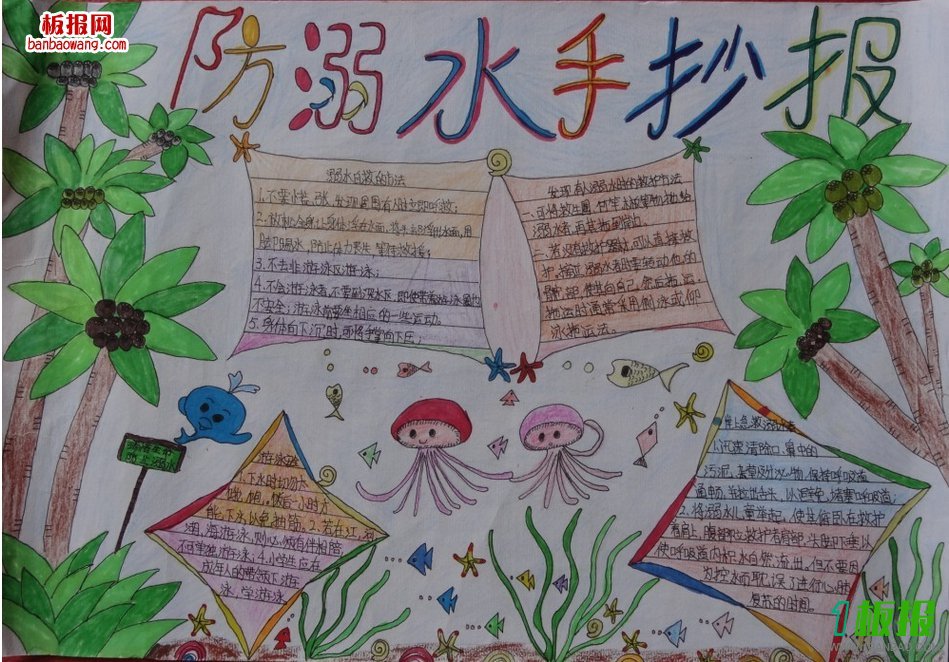 板报网
banbaowang.com
防溺水手抄报
溺水自救的方法
1.不要慌张,发现周围有人时立即呼救;
2.放松全身,让身体漂浮在水面,将头部浮出水面,用
脚踢水,防止体力丧失,等待救援;
3.不去非游泳区游泳;
4.不会游泳者,不要到深水区,即使带着游泳圈也
不安全;游泳前要坐相应的一些运动。
5.身体向下沉时,可将手掌向下压;
发现有人溺水时的救护方法
一、可将救生圈、竹竿、木板等物抛给
溺水者,再将其拖到岸边;
二、若没有救护器材,可以直接救
护,接近溺水者时要转动他的
髋部,使其背向自己然后拖运。
拖运时通常采用侧泳或仰
泳拖运法。
游泳
1.下水时切勿太
饿、饱。饭后一小时方
能下水,以免抽筋。2.若在江、河
湖、海游泳,则必须有伴相陪
不可单独游泳;4.小学生应在
成年人的带领下游
泳,学游泳
岸上急救溺水
1.迅速清除口、鼻中的
污泥、杂草及分泌物,保持呼吸道
通畅,并拉出舌头,以避免堵塞呼吸道;
2.将溺水儿童举起,使其俯卧在救护
者肩上,腹部紧贴救护者肩部,头脚下垂,以
使呼吸道内积水自然流出。但不要因
为控水而耽误了进行心肺
复苏的时间。
1板报